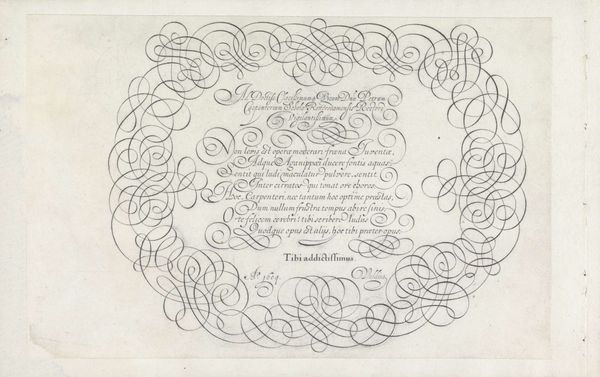 Ad Doctiss. Clarissimumq. Virum Dnn. Petrum
Carpenterium Scholæ Rotterodamensis Rectorem
Vigilantissimum.
Non levis est operæ moderari fræna Iuventæ,
Adque Aganippæi ducere fontis aquas.
Sentit qui ludi maculatur pulvere, sentit
Inter cirratos qui tonat ore choros.
Hoc, Carpenteri, nec tantum hoc optime præstas,
Dum nullum frustra tempus abire sinis.
te felicem cerebri! tibi scribere ludus
Quodque opus est alijs, hoc tibi præter opus.
Tibi addictissimus
A.º 1604.